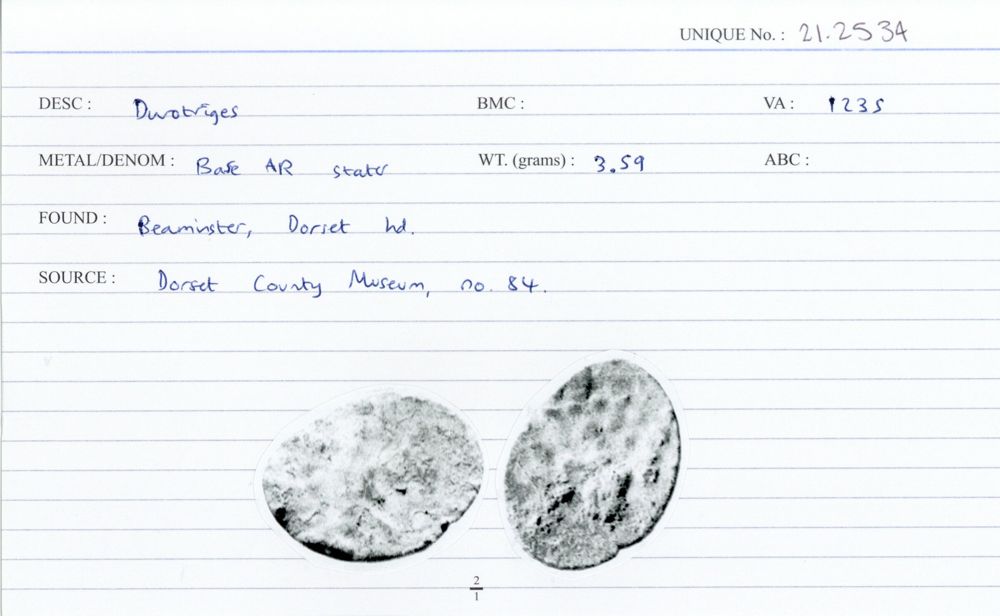 UNIQUE No. : 21.2534
DESC : Durotriges BMC : VA : 1235
METAL/DENOM : Base AR stater WT. (grams) : 3.59 ABC :
FOUND : Beaminster, Dorset hd.
SOURCE : Dorset County Museum, no. 84.
2
1